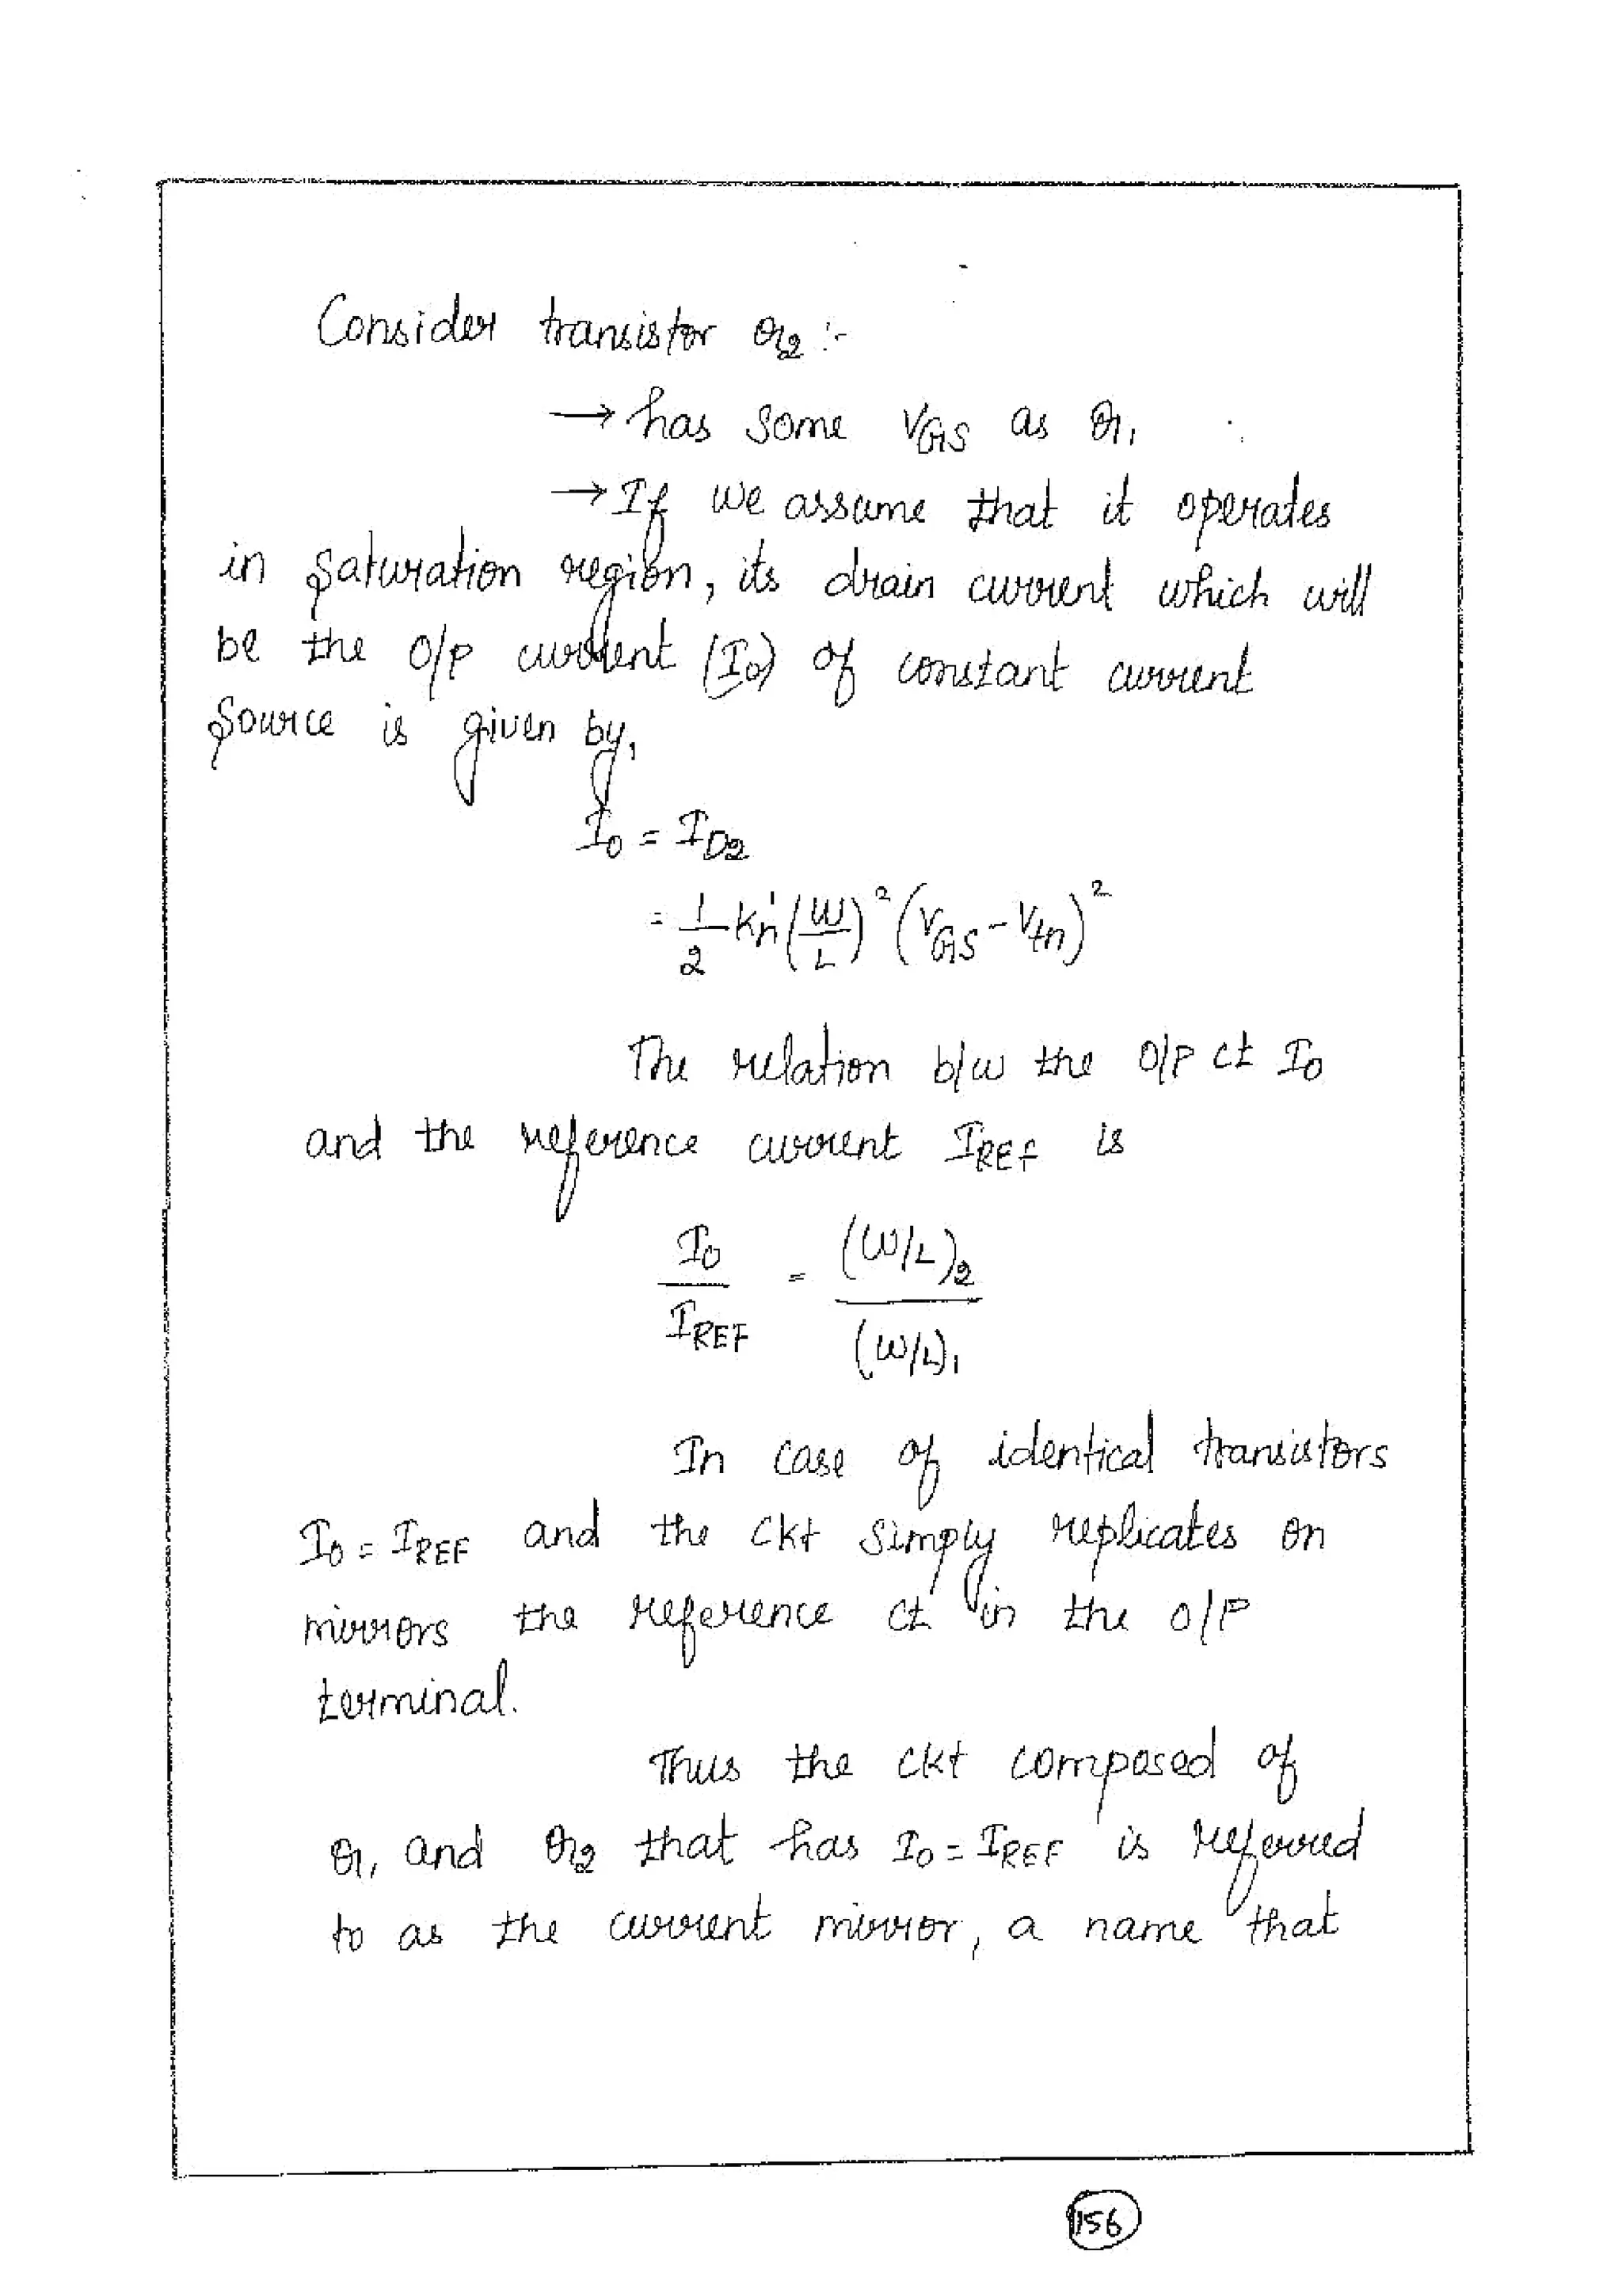 Consider transistor Q2 :-
→ has some VGS as Q1
→ If we assume that it operates
in saturation region, its drain current which will
be the O/P current (I0) of constant current
source is given by,
I0 = ID2
= 1/2 kn' (W/L)² (VGS - Vtn)²
The relation b/w the O/P ct I0
and the reference current IREF is
I0/IREF = (W/L)2/(W/L)1
In case of identical transistors
I0 = IREF and the ckt simply replicates on
mirrors the reference ct in the O/P
terminal.
Thus the ckt composed of
Q1 and Q2 that has I0 = IREF is referred
to as the current mirror, a name that
156